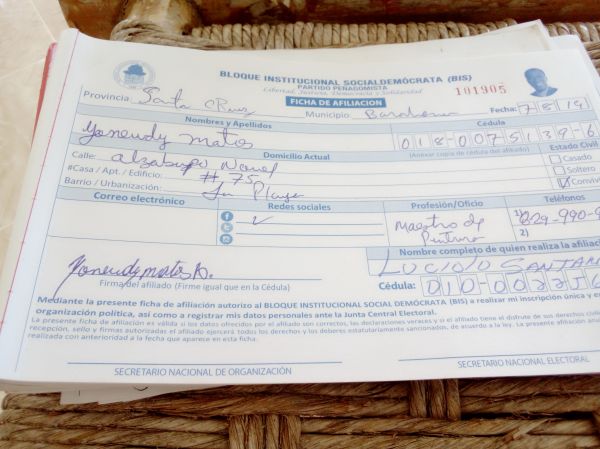 BLOQUE INSTITUCIONAL SOCIALDEMÓCRATA (BIS)
PARTIDO PENAGOMISTA
Libertad, Justicia, Democracia y Solidaridad
101905
FICHA DE AFILIACION
Provincia Santa cRuz Municipio Barahona Fecha: 7/8/19
Nombres y Apellidos Cédula
Yaneudy matos 018-0075139-6
(Anexar copia de cédula del afiliado) Estado Civil
Domicilio Actual
Casado
Calle:
#Casa / Apt. / Edificio: # 75 Soltero
Barrio / Urbanización: La Playa
Correo electrónico Redes sociales Profesión/Oficio Teléfonos
Maestro de Pintura
1) 829-990-
2)
Nombre completo de quien realiza la
LUCIDIO
Yaneudy matos D.
Firma del afiliado (Firme igual que en la Cédula)
Cédula: 010-00
Mediante la presente ficha de afiliación autorizo al BLOQUE INSTITUCIONAL SOCIAL DEMÓCRATA (BIS) a realizar mi inscripción única y
organización política, así como a registrar mis datos personales ante la Junta Central Electoral.
La presente ficha de afiliación es válida si los datos ofrecidos por el afiliado son correctos, las declaraciones veraces y si el afiliado tiene el disfrute de sus derechos
recepción, sello y firmas autorizadas el afiliado ejercerá todos los derechos y los deberes estatutariamente sancionados, de acuerdo a la ley. La presente afiliación
realizada con anterioridad a la fecha que aparece en esta ficha.
SECRETARIO NACIONAL DE ORGANIZACIÓN SECRETARIO NACIONAL ELECTORAL